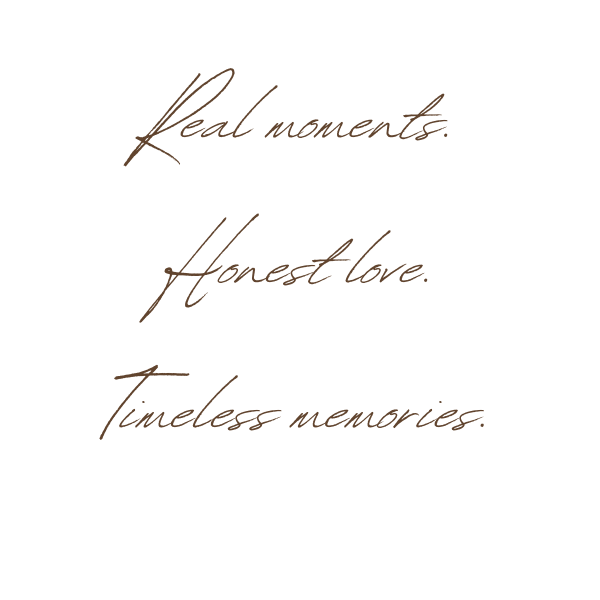 Real moments.
Honest love.
Timeless memories.